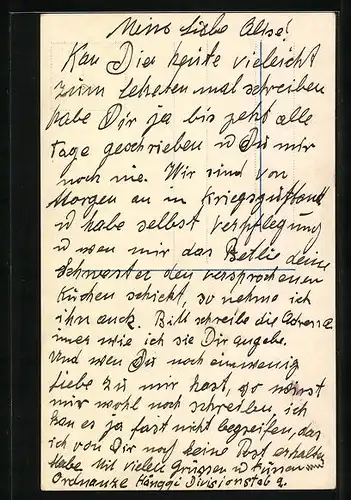 Meine liebe Alise!
Kan Dier heute vieleicht
zum letzten mal schreiben
habe Dir ja bis jetzt alle
tage geschrieben u Du mir
noch nie. Wir sind von
Morgen an in Kriegszustand
u habe selbst verpflegung
u wen mir das Betli deine
Schwester den versprochenen
Kuchen schickt, so nehme ich
ihn auch. Bitt schreibe die Adresse
imer wie ich sie Dir angebe.
Und wen Du noch ein wenig
liebe zu mir hast, so wirst
mir wohl noch schreiben, ich
kan es ja fast nicht begreifen, das
ich von Dir noch keine Post erhalten
habe. Mit vielen Grüssen u Küssen
Ordnanze Hänggi Divisionstab 2.